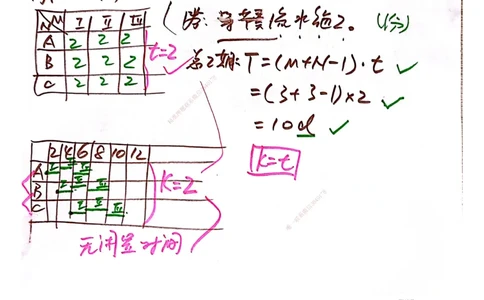 N M I II III
A 2 2 2
B 2 2 2
C 2 2 2
t=2
答:等节奏流水施工。(1分)
总工期:T=(M+N-1)·t
=(3+3-1)×2
=10d
K=t
2 4 6 8 10 12
A I II III
B I II III
C I II III
K=2
无闲置时间